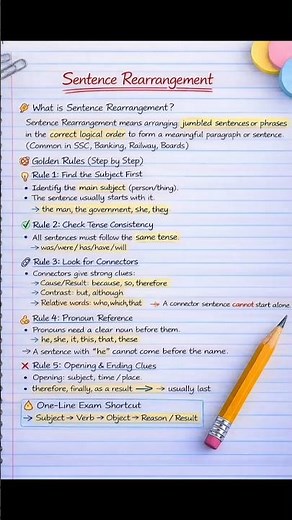 Sentence Rearrangement
What is Sentence Rearrangement?
Sentence Rearrangement means arranging jumbled sentences or phrases
in the correct logical order to form a meaningful paragraph or sentence.
(Common in SSC, Banking, Railway, Boards)
Golden Rules (Step by Step)
Rule 1: Find the Subject First
• Identify the main subject (person/thing).
• The sentence usually starts with it.
→ the man, the government, she, they
Rule 2: Check Tense Consistency
• All sentences must follow the same tense.
→ was/were/has/have/will
Rule 3: Look for Connectors
• Connectors give strong clues:
→ Cause/Result: because, so, therefore
→ Contrast: but, although
→ Relative words: who, which, that → A connector sentence cannot start alone.
Rule 4: Pronoun Reference
• Pronouns need a clear noun before them.
→ he, she, it, this, that, these
→ A sentence with "he" cannot come before the name.
Rule 5: Opening & Ending Clues
• Opening: subject, time / place.
• therefore, finally, as a result → usually last
One-Line Exam Shortcut
→ Subject → Verb → Object → Reason / Result